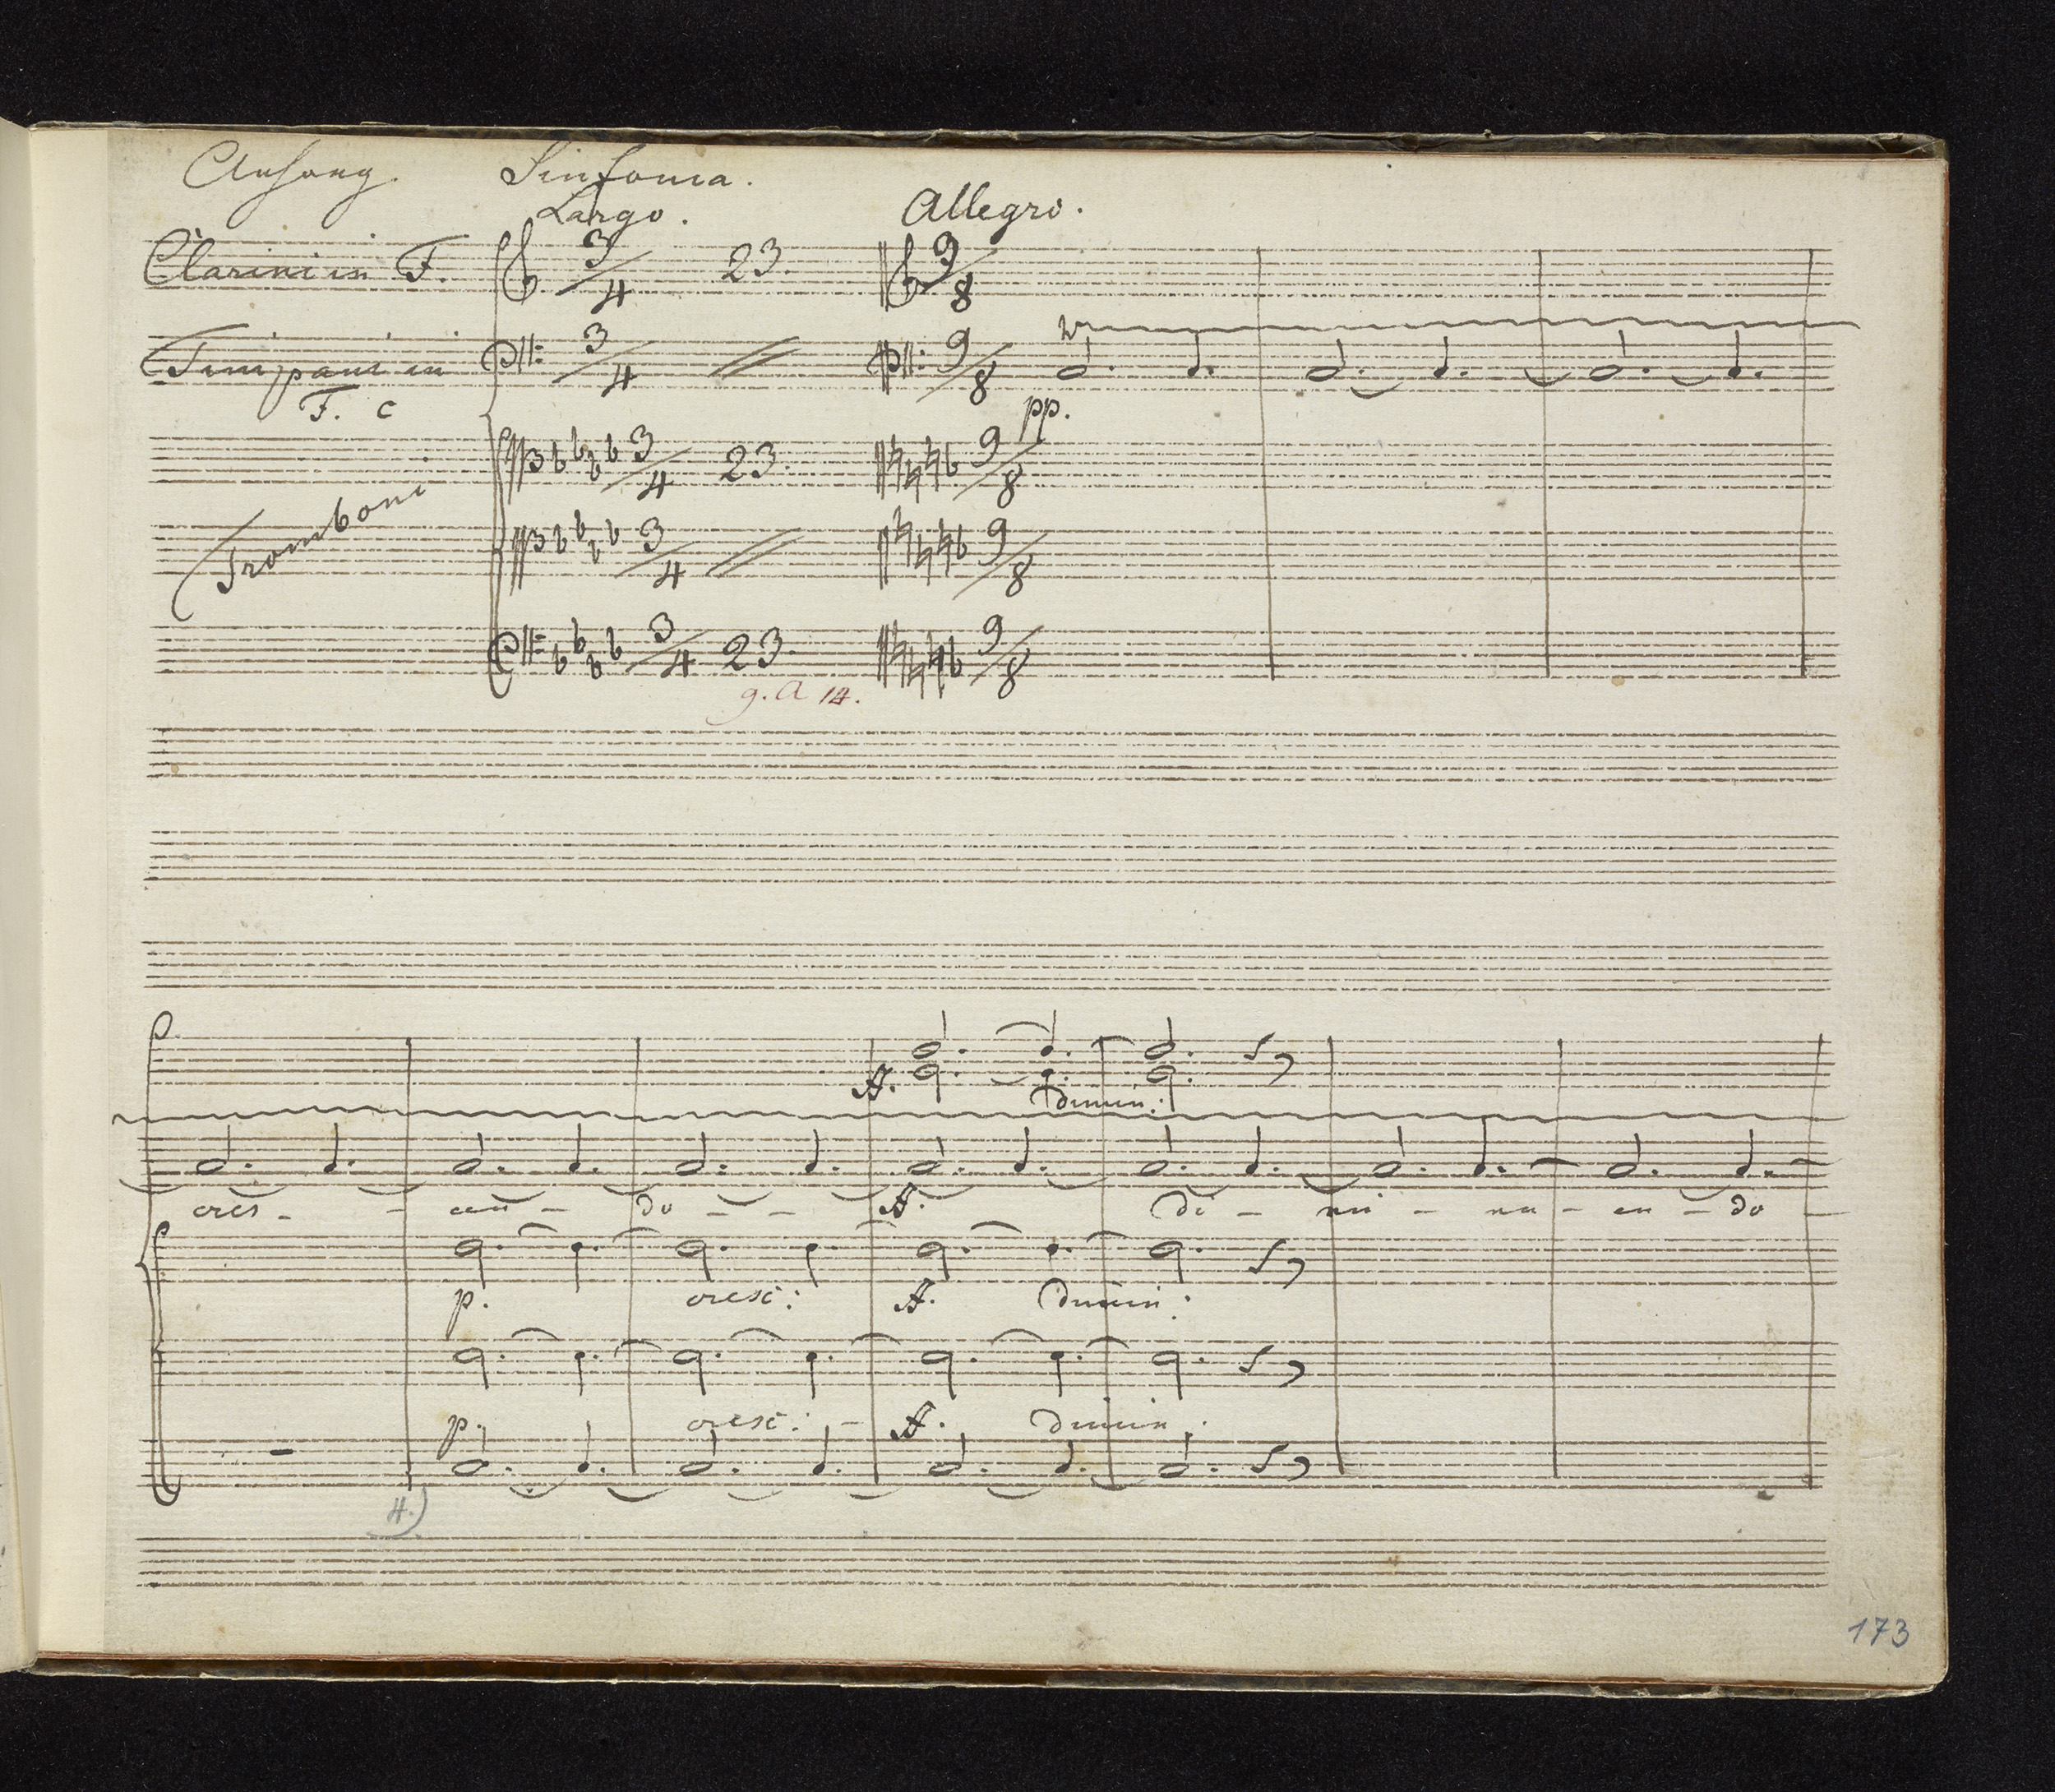 Anhang. Sinfonia.
Largo. Allegro.
Clarini in F. 3/4 23. 9/8
Timpani in 3/4 9/8
F. C pp.
Tromboni
3/4 23. 9/8
3/4 9/8
3/4 23. 9/8
g. A 14.
ff.
dimin:
cres - - cen - do - - ff. di - mi - nu - en - do -
p. cresc: ff. dimin:
p. cresc: - ff. dimin:
4.)
173